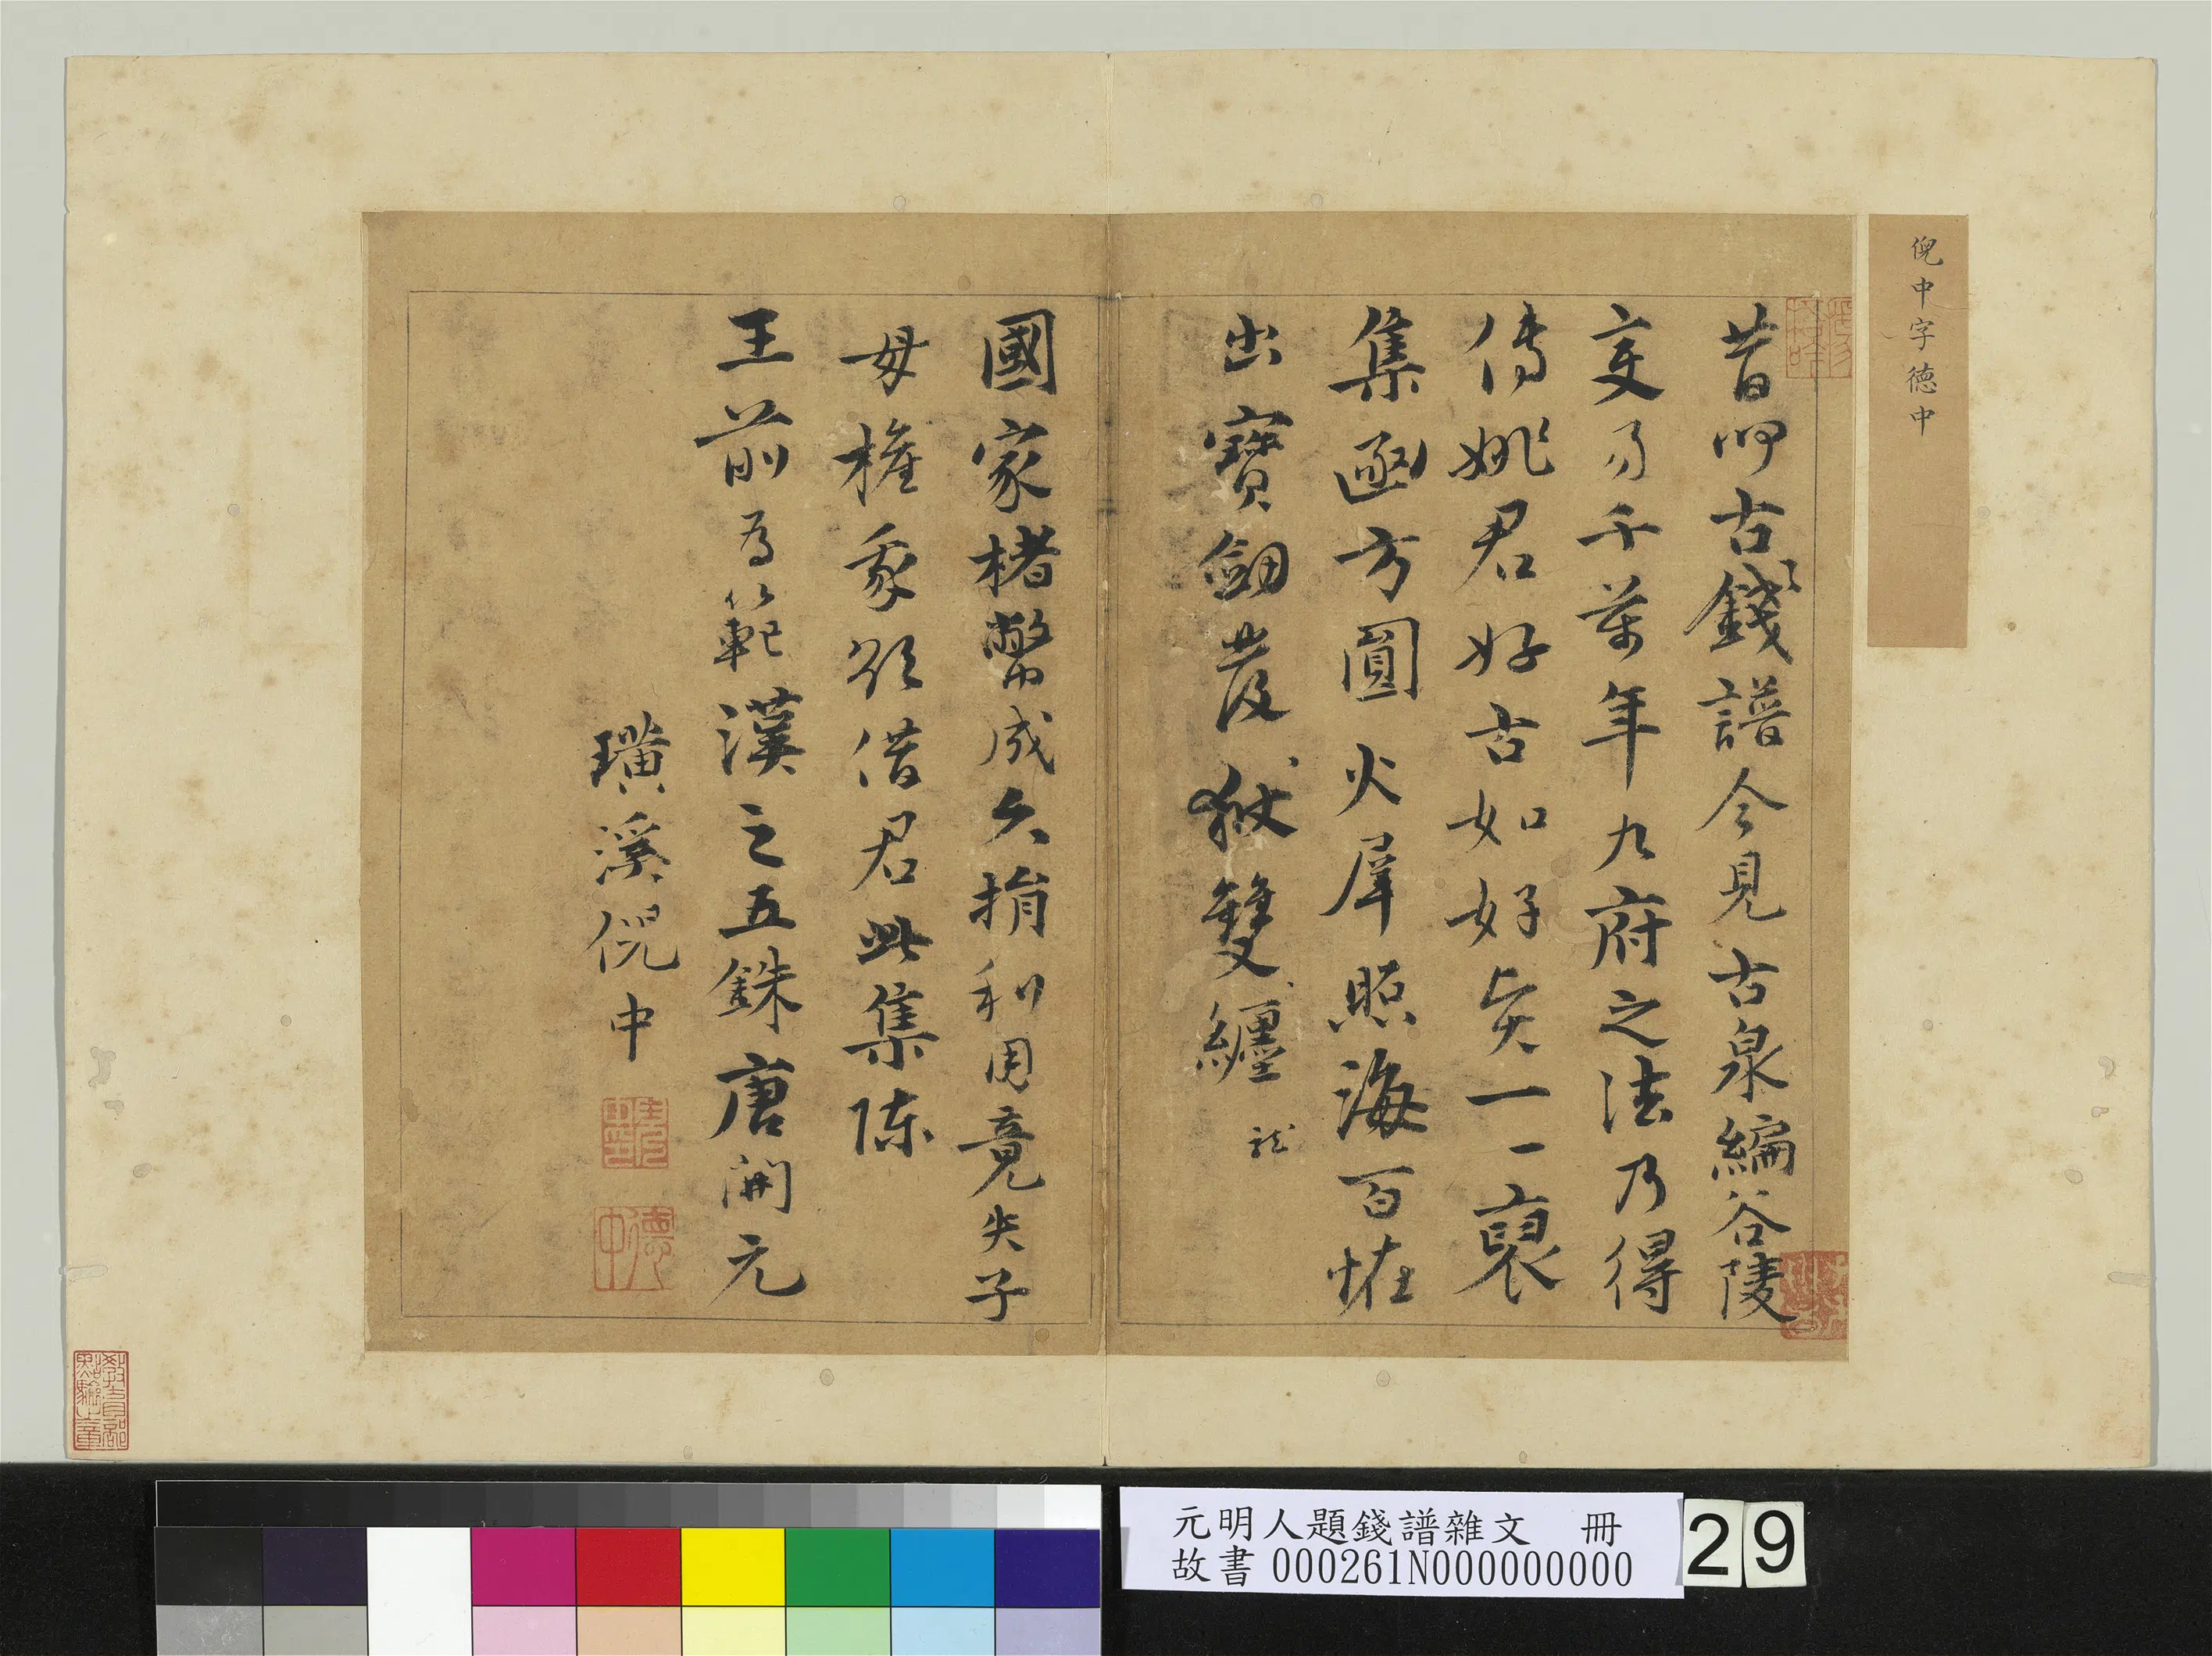 倪中字德中
昔聞古錢譜今見古泉編谷陵
變易千萬年九府之法乃得
傳姚君好古如好學一一裒
集函方圓火犀照海百怪
出寶劍發獄雙纏龍
國家楮幣成久捐利用竟失子
母權我欲借君此集陳
王前為範漢之五銖唐開元
璜溪倪中
德中
教育部點驗之章
元明人題錢譜雜文 冊
故書 000261N000000000
29